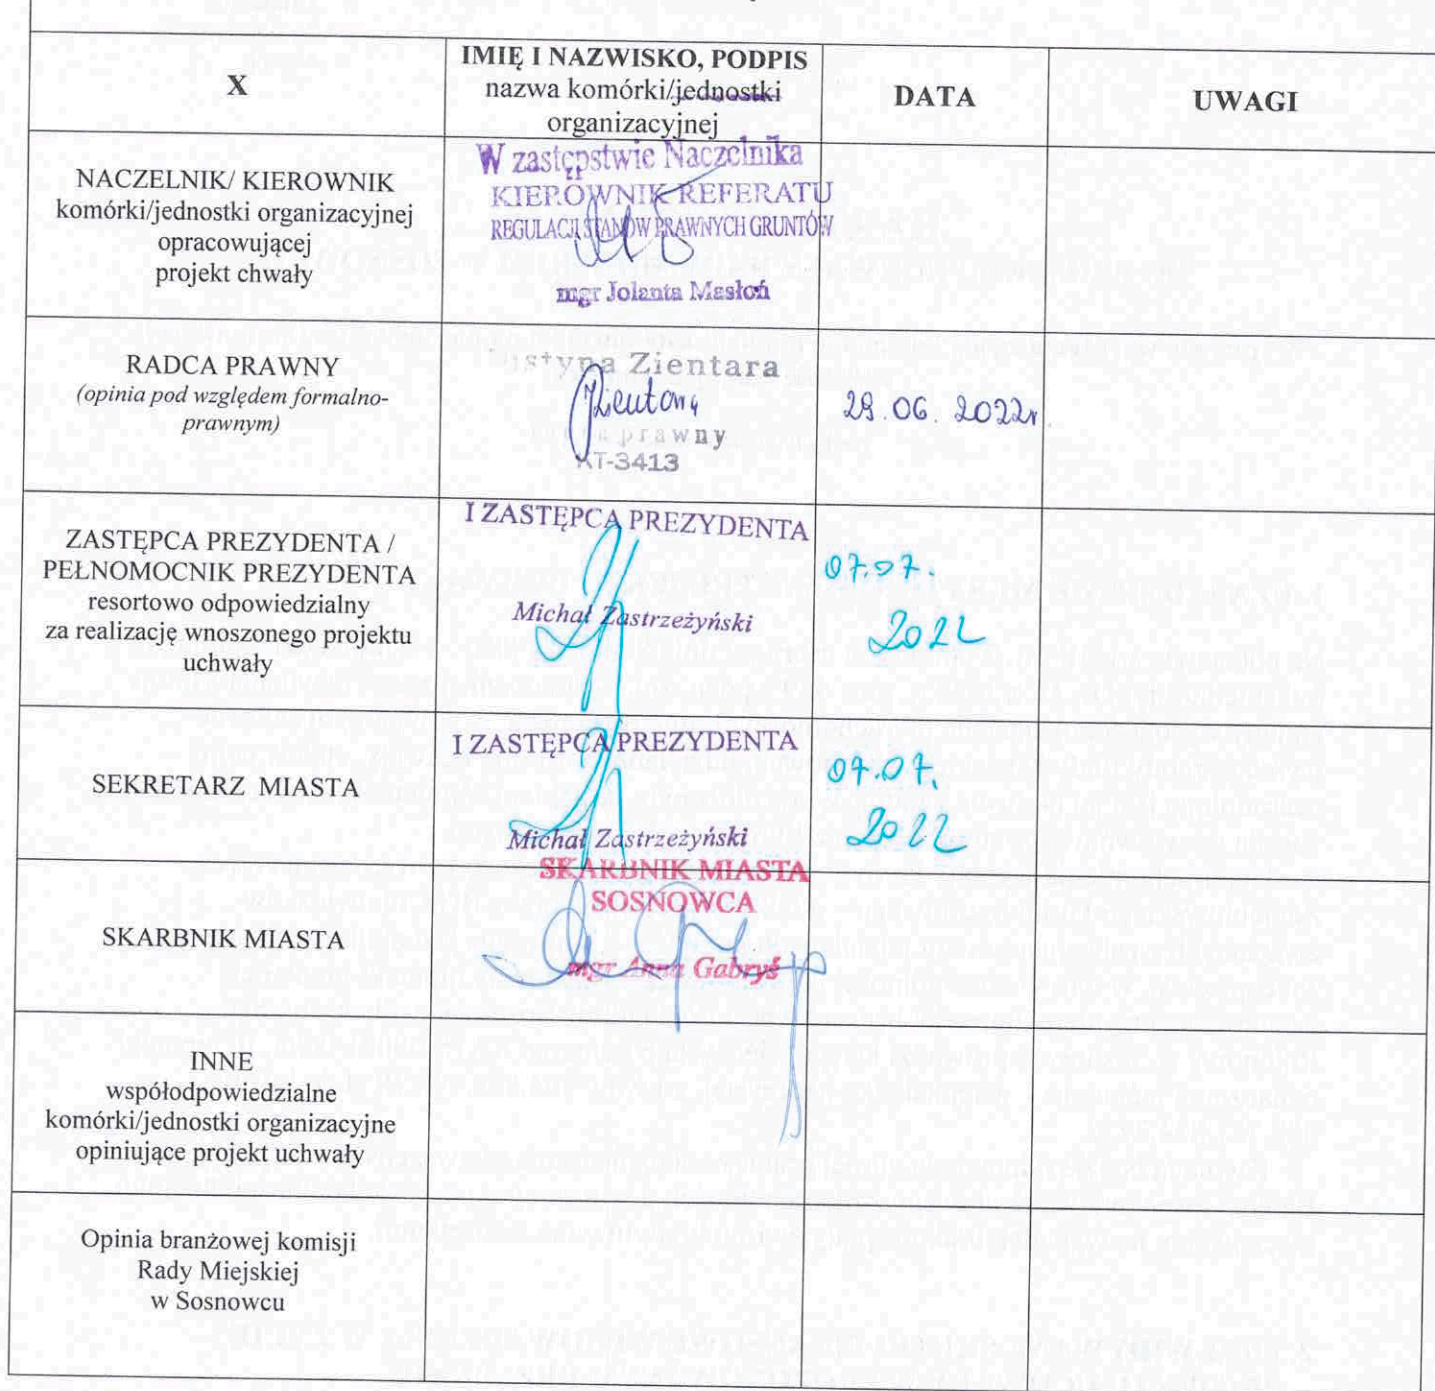 X
IMIĘ I NAZWISKO, PODPIS
nazwa komórki/jednostki
organizacyjnej
DATA
UWAGI
NACZELNIK/ KIEROWNIK
komórki/jednostki organizacyjnej
opracowującej
projekt chwały
W zastępstwie Naczelnika
KIEROWNIK REFERATU
REGULACJI STANÓW PRAWNYCH GRUNTÓW
mgr Jolanta Masłoń
RADCA PRAWNY
(opinia pod względem formalno-
prawnym)
Justyna Zientara
Zientara
prawny
KT-3413
29.06.2022r
ZASTĘPCA PREZYDENTA /
PEŁNOMOCNIK PREZYDENTA
resortowo odpowiedzialny
za realizację wnoszonego projektu
uchwały
I ZASTĘPCA PREZYDENTA
Michał Zastrzeżyński
07.07.
2022
SEKRETARZ MIASTA
I ZASTĘPCA PREZYDENTA
Michał Zastrzeżyński
07.07.
2022
SKARBNIK MIASTA
SKARBNIK MIASTA
SOSNOWCA
mgr Anna Gabryś
INNE
współodpowiedzialne
komórki/jednostki organizacyjne
opiniujące projekt uchwały
Opinia branżowej komisji
Rady Miejskiej
w Sosnowcu